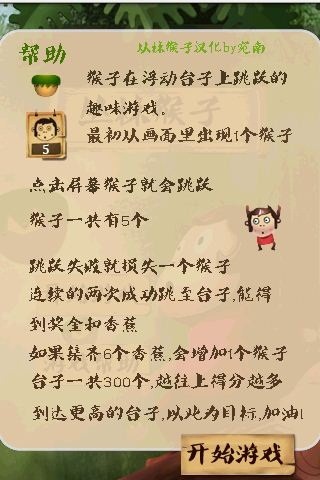 帮助
丛林猴子汉化by宛南
猴子在浮动台子上跳跃的
趣味游戏。
最初从画面里出现1个猴子
5
点击屏幕猴子就会跳跃
猴子一共有5个
跳跃失败就损失一个猴子
连续的两次成功跳至台子,能得
到奖金和香蕉
如果集齐6个香蕉,会增加1个猴子
台子一共300个,越往上得分越多
到达更高的台子,以此为目标,加油!
开始游戏